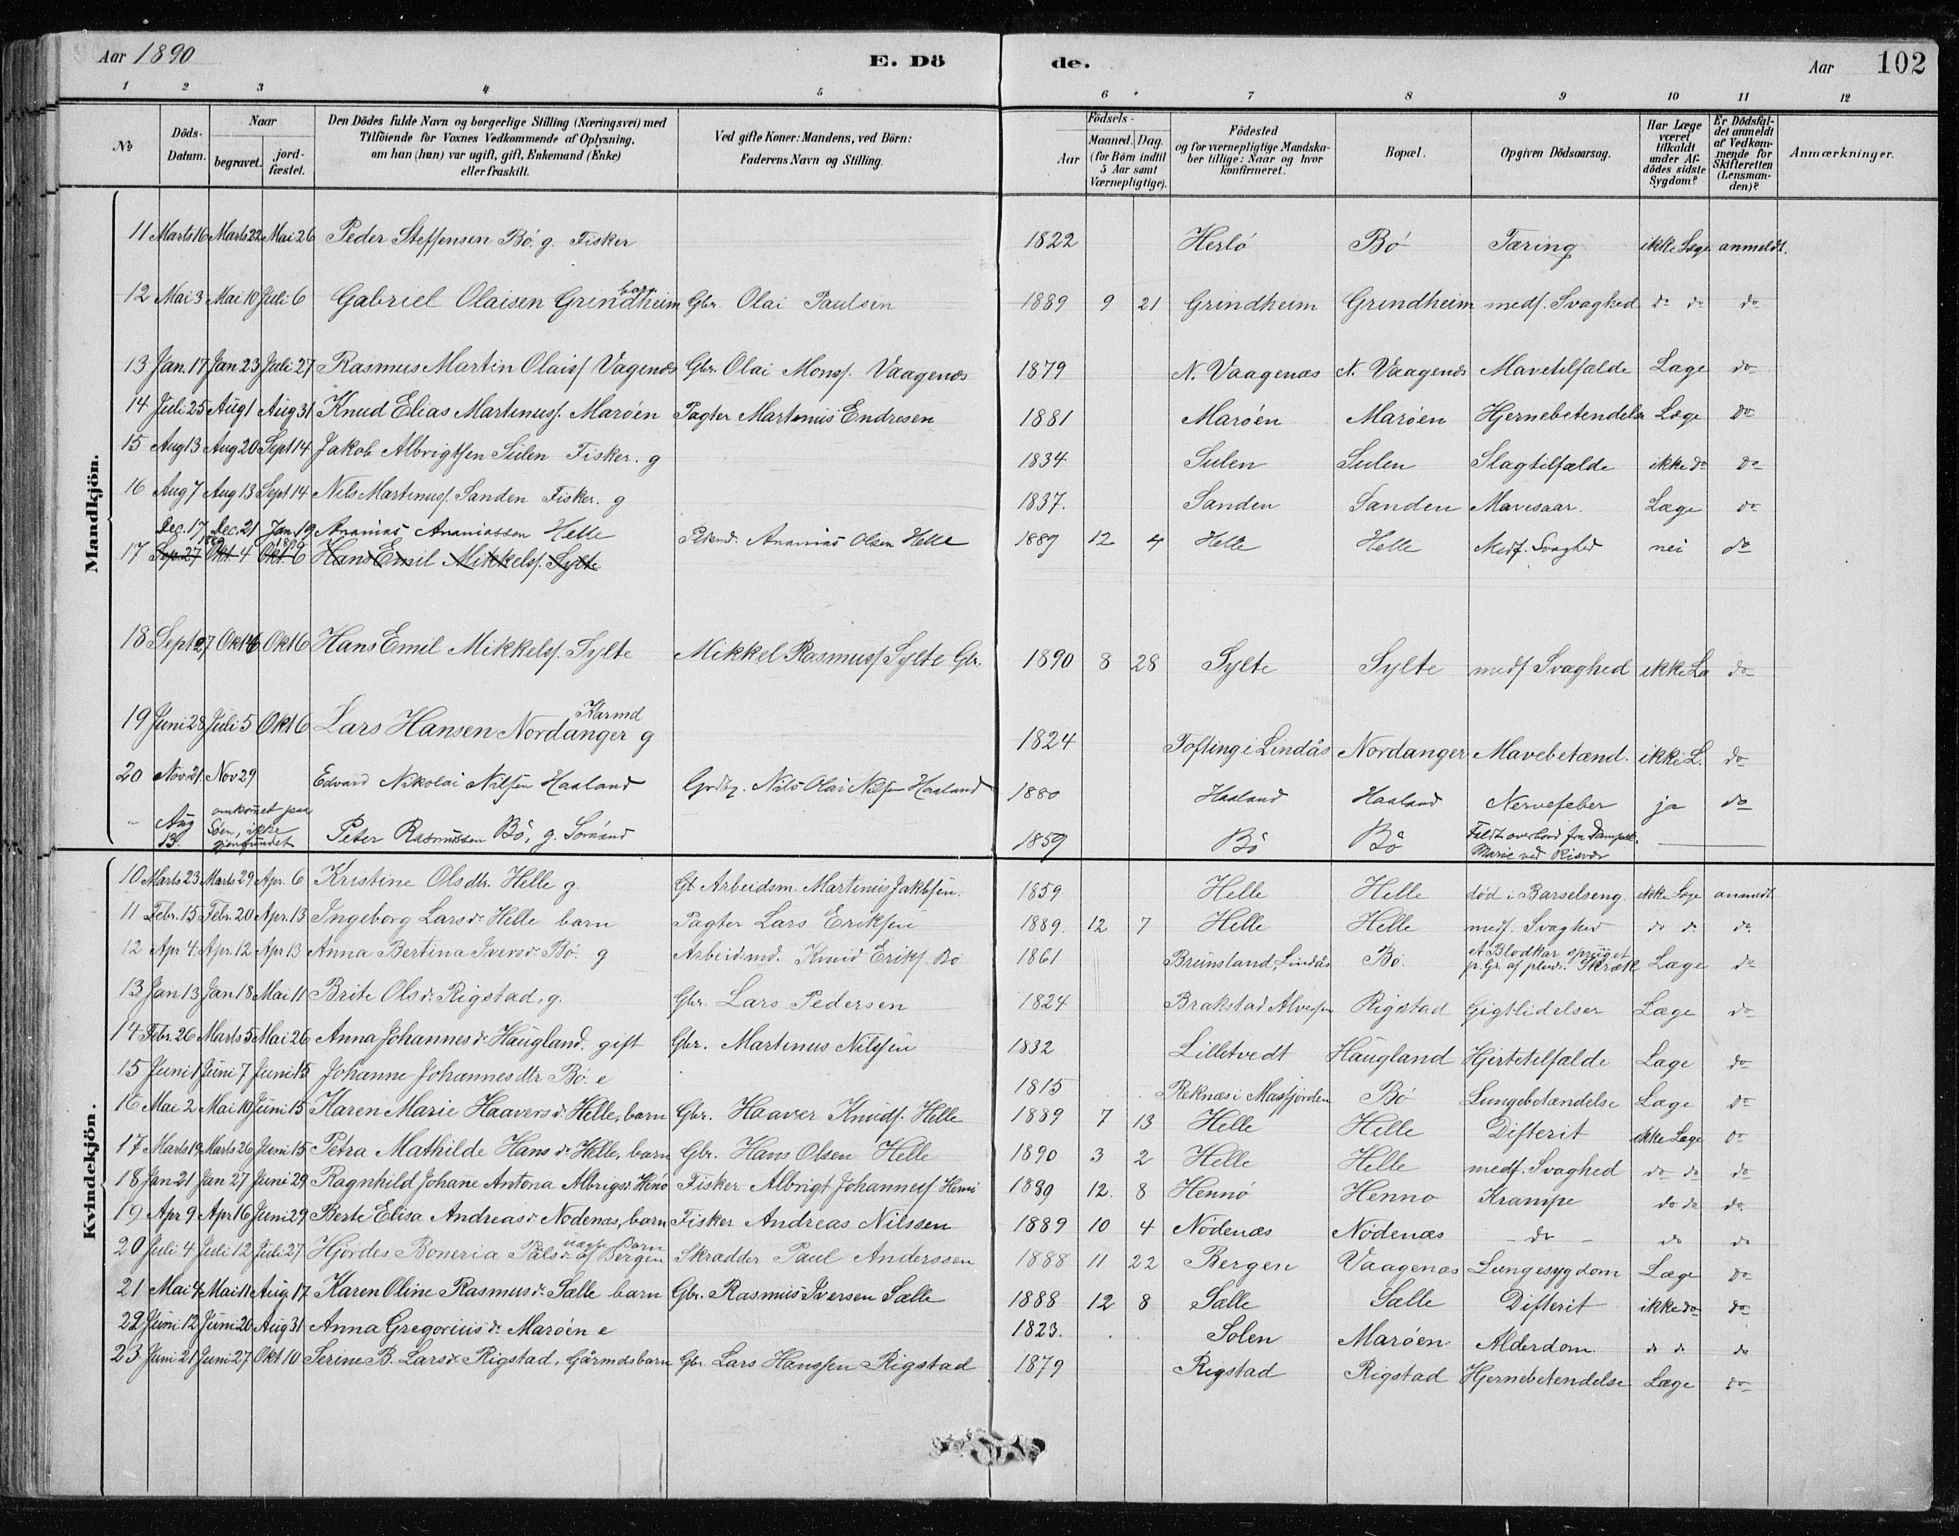 Aar 1890 E. Dö de. Aar 102
1 2 3 4 5 6 7 8 9 10 11 12
№ Döds-Datum. Naar begravet. jord-fæstet. Den Dödes fulde Navn og borgerlige Stilling (Næringsvei) med Tilföiende for Voxnes Vedkommende af Oplysning, om han (hun) var ugift, gift, Enkemand (Enke) eller fraskilt. Ved gifte Koner: Mandens, ved Börn: Faderens Navn og Stilling. Födsels- Aar Maaned. Dag. (for Börn indtil 5 Aar samt Værnepligtige). Födested og for værnepligtige Mandskaber tillige: Naar og hvor konfirmeret. Bopæl. Opgiven Dödsaarsag. Har Læge været tilkaldt under Afdödes sidste Sygdom? Er Dödsfaldet anmeldt af Vedkommende for Skifteretten (Lensmanden)? Anmærkninger.
Mandkjön.
11 Marts 16 Marts 22 Mai 26 Peder Steffensen Bö g. Fisker 1822 Herlö Bö Tæring ikke Læge anmeldt.
12 Mai 3 Mai 10 Juli 6 Gabriel Olaisen Grindheim barn Gbr. Olai Paulsen 1889 9 21 Grindheim Grindheim medf. Svaghed do do do
13 Jan. 17 Jan 23 Juli 27 Rasmus Martin Olaisf Vagenes Gbr. Olai Monsf. Vaagenæs 1879 N. Vaagenæs N. Vaagenæs Mavetilfælde Læge do
14 Juli 25 Aug 1 Aug 31 Knud Elias Martinusf. Maröen Pagter Martinius Endresen 1881 Maröen Maröen Hjernebetendelse Læge do
15 Aug 13 Aug 20 Sept 14 Jakob Albrigtsen Sulen Fisker. g 1834 Sulen Sulen Slagtilfælde ikke do do
16 Aug 7 Aug 13 Sept 14 Nils Martinusf. Sanden Fisker. g 1837. Sanden Sanden Mavesaar. Læge do
Dec. 17 Dec. 21 Jan 19 Ananias Ananiassen Helle Ananias Olsen Helle 1889 12 4 Helle Helle Medf. Svaghed nei do
17 Sep. 27 Okt. 4 Okt. 6 Hans Emil Mikkelsf. Sylte
18 Sept 27 Okt 4 Okt 6 Hans Emil Mikkelsf. Sylte Mikkel Rasmusf Sylte Gbr. 1890 8 28 Sylte Sylte medf Svaghed ikke Læ do
19 Juni 28 Juli 5 Okt 6 Lars Hansen Nordanger Karmd g 1824 Tofting i Lindås Nordanger Mavebetænd. ikke L. do
20 Nov. 21 Nov 29 Edvard Nikolai Nilsen Haaland Nils Olai Nilsen Haaland 1880 Haaland Haaland Nervefeber ja do
" Aug 13. omkommet paa Söen, ikke gjenfundet Peter Rasmussen Bö, g. Sömand 1859 Bö Bö Faldt overbord fra Dampsk. Marie ved Risvær
Kvindekjön.
10 Marts 23 Marts 29 Apr. 6 Kristine Olsdtr. Helle g. Gt Arbeidsm. Martinus Jakobsen. 1859 Helle Helle död i Barselseng ikke Læge anmeldt.
11 Febr. 15 Febr. 20 Apr. 13 Ingeborg Larsdr Helle barn Pagter Lars Eriksen 1889. 12 7 Helle Helle medf. Svaghed do do do
12 Apr 4 Apr. 12 Apr 13 Anna Bertina Iversdr Bö. g Arbeidsmd. Knud Eriks. Bö 1861 Brunsland, Lindås Bö. et Blodkar sprunget p. Gr. af pluds. Skræk Læge do
13 Jan 13 Jan 18 Mai 11 Brite Olsdr. Rigstad, g. Gbr. Lars Pedersen 1824 Brakstad Rigstad Gigtlidelser Læge do
14 Febr. 26 Marts 5 Mai 26 Anna Johannesdr Haugland. gift Gbr. Martinus Nilssen 1832 Lilletvedt Haugland Hjertetilfælde Læge do
15 Juni 1 Juni 7 Juni 15 Johanne Johannesdtr Bö. e 1815 Reknæs i Masfjorden Bö Lungebetændelse Læge do
16 Mai 2 Mai 10 Juni 15 Karen Marie Haaversdr. Helle, barn Gbr. Haaver Knudsf. Helle 1889 7 13 Helle Helle Difterit ikke Læge do
17 Marts 19 Marts 26 Juni 15 Petra Mathilde Hansdr Helle, barn Gbr. Hans Olsen Helle 1890 3 2 Helle Helle medf. Svaghed do do do
18 Jan 21 Jan 27 Juni 29 Ragnhild Johane Antona Albrigsdr Henö Fisker Albrigt Johannesf Henö 1889 12. 8 Hennö Henno Krampe do do do
19 Apr 9 Apr 16 Juni 29 Berte Elisa Andreasdr Nödenæs, barn Fisker Andreas Nilssen 1889 10 4 Nödenæs Nödenæs - do - do do
20 Juli 4 Juli 12 Juli 27 Hjördes Boneria Pålsdr uægte Barn af Bergen Skrædder Paul Anderssen 1888 11 22 Bergen Vaagenæs Lungesygdom Læge do
21 Mai 4 Mai 11 Aug. 17 Karen Oline Rasmusdr. Sælle barn Gbr. Rasmus Iversen Sælle 1888 12 8 Sælle Sælle Difterit ikke do do
22 Juni 12 Juni 20 Aug 31 Anna Gregoriusdr Maröen e 1823. Solen Maröen Alderdom do do do
23 Juni 21 Juni 27 Okt 10 Serine B. Larsdr Rigstad, Gårmdsbarn Gbr Lars Hanssen Rigstad 1879 Rigstad Rigstad Hjernebetendelse Læge do